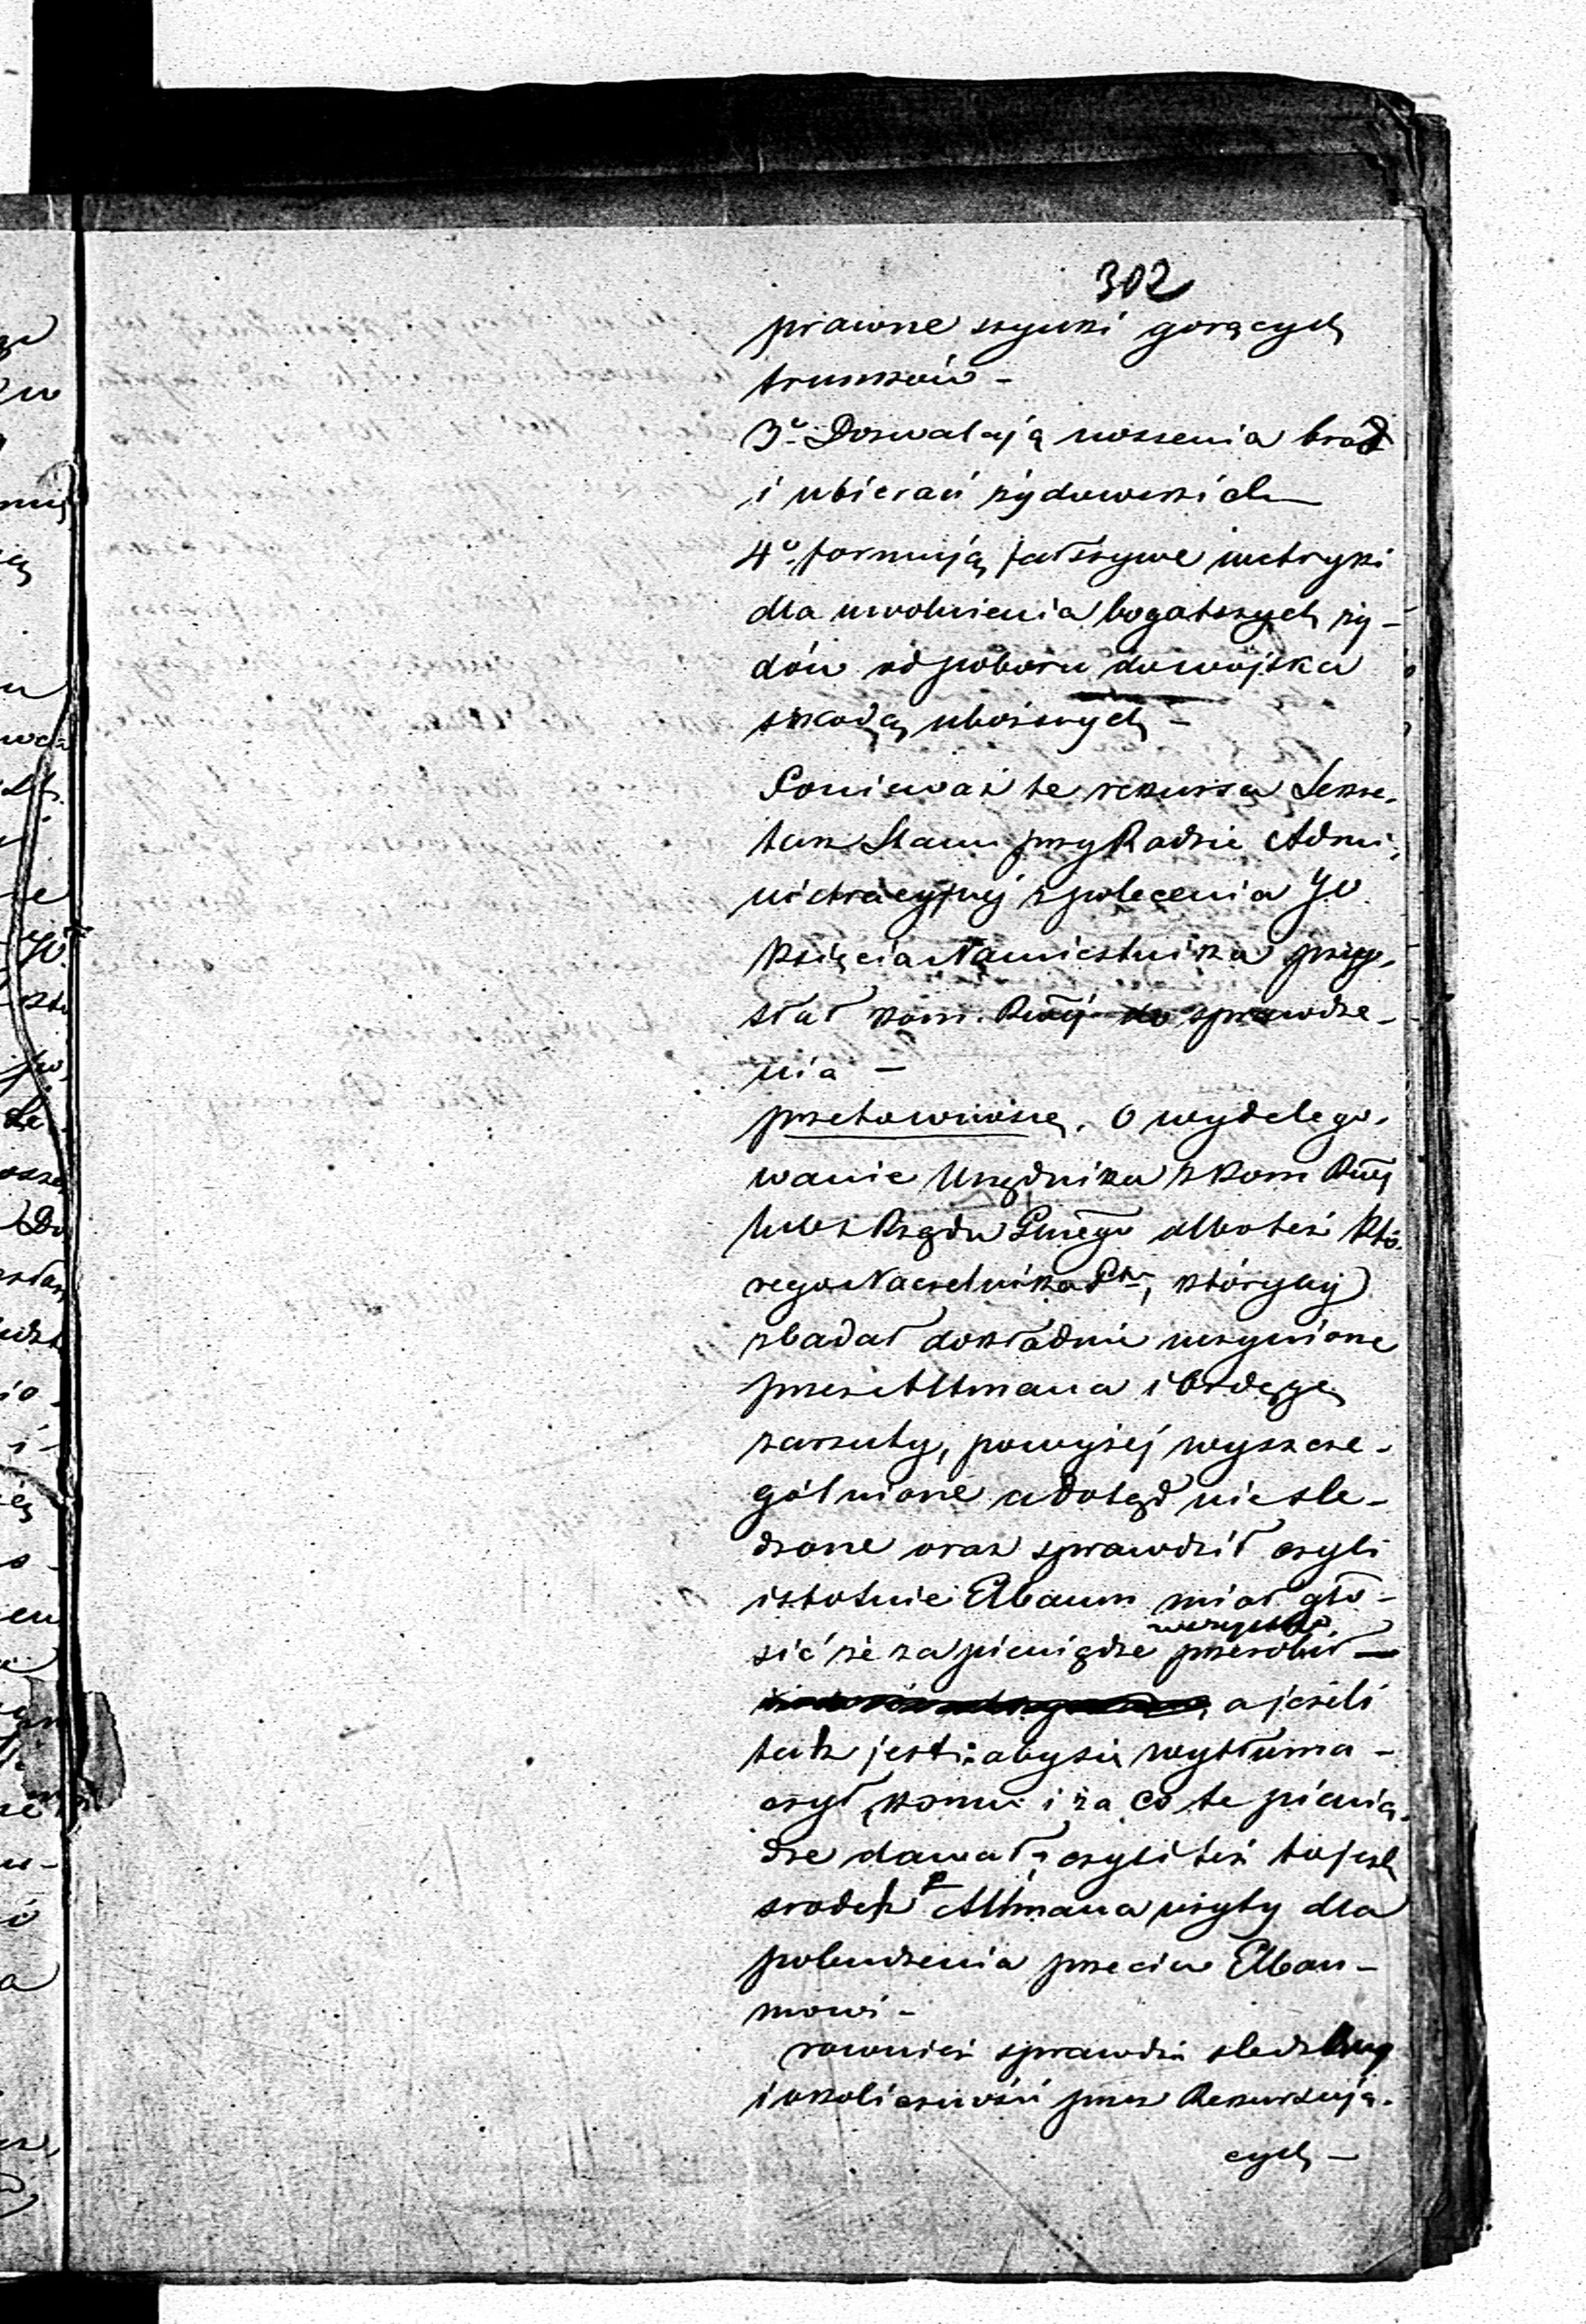 302
prawne szynki gorących
trunków -
3o. Dozwalają noszenia brod
i ubierań żydowskich
4o. formują fałszywe metryki
dla uwolnienia bogatszych ży-
dów od poboru do wojska
szkodą uboższych -
Ponieważ te rekursa Sekre-
tarz Stanu przy Radzie Admi-
nistracyjnej z polecenia JO
Księcia Namiestnika przy-
słał Kom. Rwej do sprawdze-
nia -
przeto wnioszę. O wydelego-
wanie Urzędnika z Kom Rwej
lub z Rządu Gnego albo też któ-
rego Naczelnika Ptu, któryby
zbadał dokładnie uczynione
przez Altmana i
zarzuty, powyżej wyszcze-
gólnione a dotąd niesle-
dzone oraz sprawdził czyli
istotnie Elbaum miał gło-
sić że za pieniądze wszystko przerobił -
a jeżeli
tak jest: aby się wytłuma-
czył, komu i za co te pienią-
dze dawał, czyli też to jest
srodek P Altmana użyty dla
pobudzenia przeciw Elbau-
mowi -
rownież sprawdzi
i okoliczności przez Rekursują-
cych -